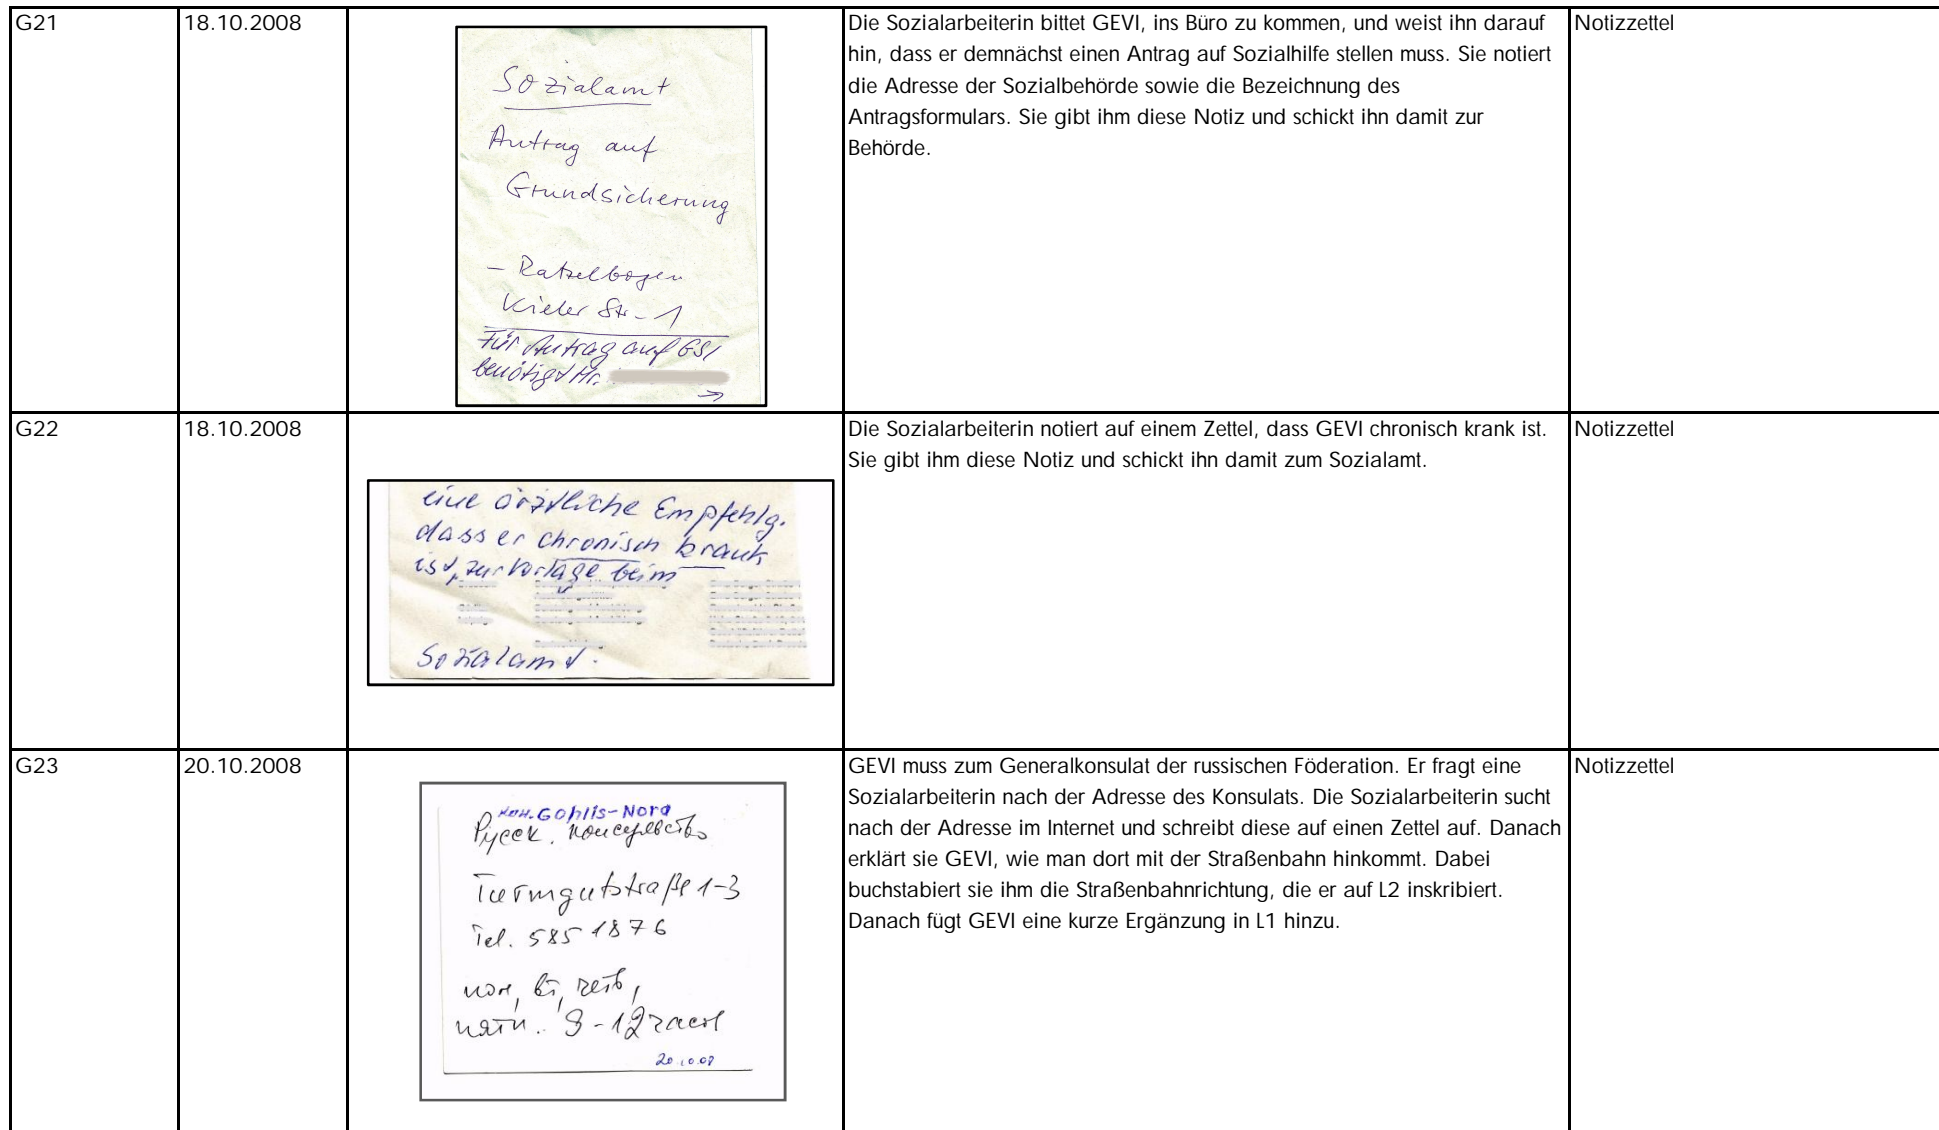 G21
18.10.2008
Sozialamt
Antrag auf
Grundsicherung
- Ratzelbogen
Kieler Str. 1
Für Antrag auf GSI
benötigt Hr.
→
Die Sozialarbeiterin bittet GEVI, ins Büro zu kommen, und weist ihn darauf
hin, dass er demnächst einen Antrag auf Sozialhilfe stellen muss. Sie notiert
die Adresse der Sozialbehörde sowie die Bezeichnung des
Antragsformulars. Sie gibt ihm diese Notiz und schickt ihn damit zur
Behörde.
Notizzettel
G22
18.10.2008
eine ärztliche Empfehlg.
dass er chronisch krank
ist, zur Vorlage beim
Sozialamt.
Die Sozialarbeiterin notiert auf einem Zettel, dass GEVI chronisch krank ist.
Sie gibt ihm diese Notiz und schickt ihn damit zum Sozialamt.
Notizzettel
G23
20.10.2008
Gohlis-Nord
Русск. консульство
Turmgutstraße 1-3
Tel. 585 1876
пон, вт, четв,
пятн. 9-12 часов
20.10.08
GEVI muss zum Generalkonsulat der russischen Föderation. Er fragt eine
Sozialarbeiterin nach der Adresse des Konsulats. Die Sozialarbeiterin sucht
nach der Adresse im Internet und schreibt diese auf einen Zettel auf. Danach
erklärt sie GEVI, wie man dort mit der Straßenbahn hinkommt. Dabei
buchstabiert sie ihm die Straßenbahnrichtung, die er auf L2 inskribiert.
Danach fügt GEVI eine kurze Ergänzung in L1 hinzu.
Notizzettel